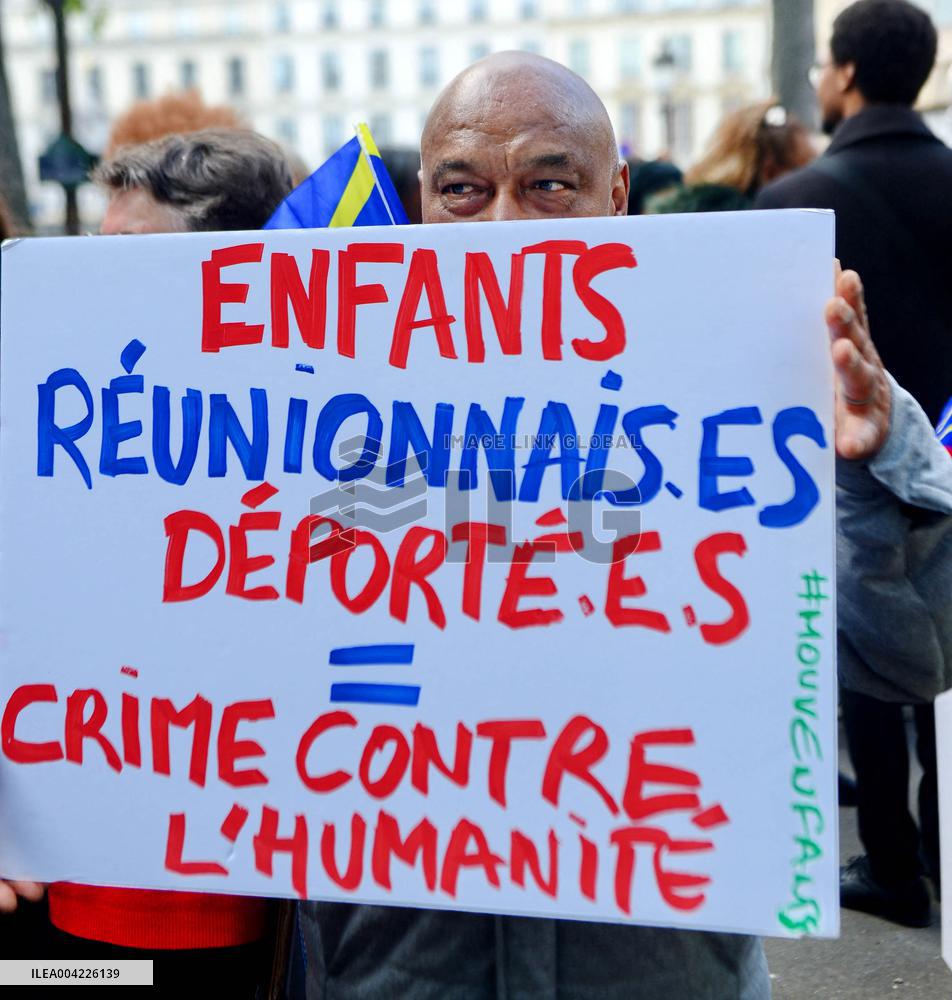 ENFANTS
RÉUNIONNAIS.ES
DÉPORTÉ.E.S
=
CRIME CONTRE
L'HUMANITÉ
#MOUVENFANTS
IMAGE LINK GLOBAL
ILG
ILEA004226139